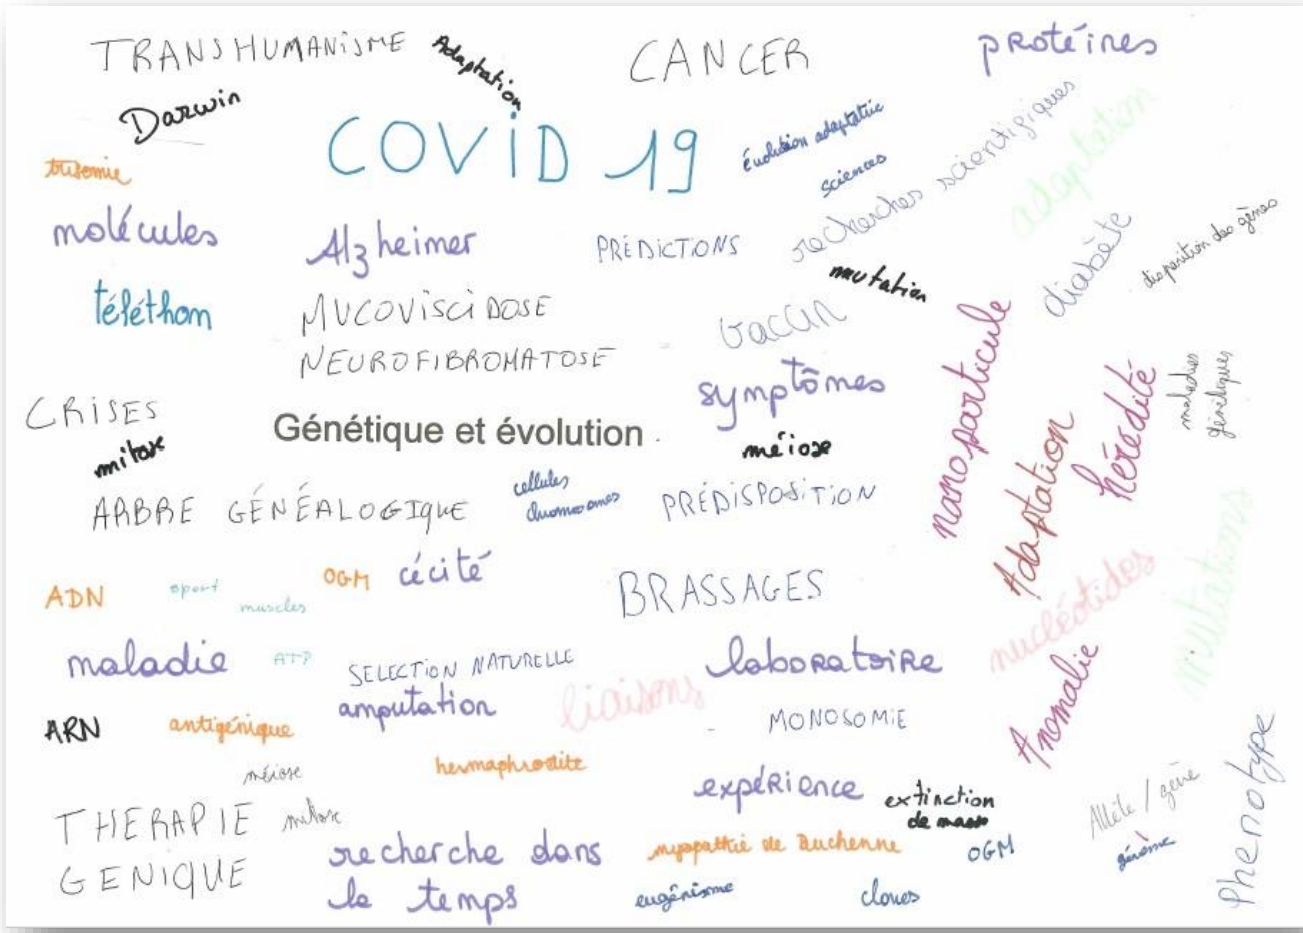 TRANSHUMANISME
Adaptation
CANCER
protéines
Darwin
COVID 19
évolution adaptative
sciences
recherches scientifiques
adaptation
trisomie
molécules
Alzheimer
PRÉDICTIONS
mutation
diabète
disparition des gènes
téléthon
MUCOVISCIDOSE
NEUROFIBROMATOSE
vaccin
symptômes
nanoparticule
hérédité
maladies
génétiques
CRISES
mitose
Génétique et évolution
méiose
Adaptation
ARBRE GÉNÉALOGIQUE
cellules
chromosomes
PRÉDISPOSITION
ADN
sport
muscles
OGM
cécité
BRASSAGES
nucléotides
mutations
maladie
ATP
SELECTION NATURELLE
amputation
liaisons
laboratoire
Anomalie
ARN
antigénique
MONOSOMIE
méiose
hermaphrodite
expérience
extinction
de masse
Allèle / gène
génome
Phenotype
THERAPIE
GENIQUE
mitose
recherche dans
le temps
myopathie de Duchenne
OGM
eugénisme
clones